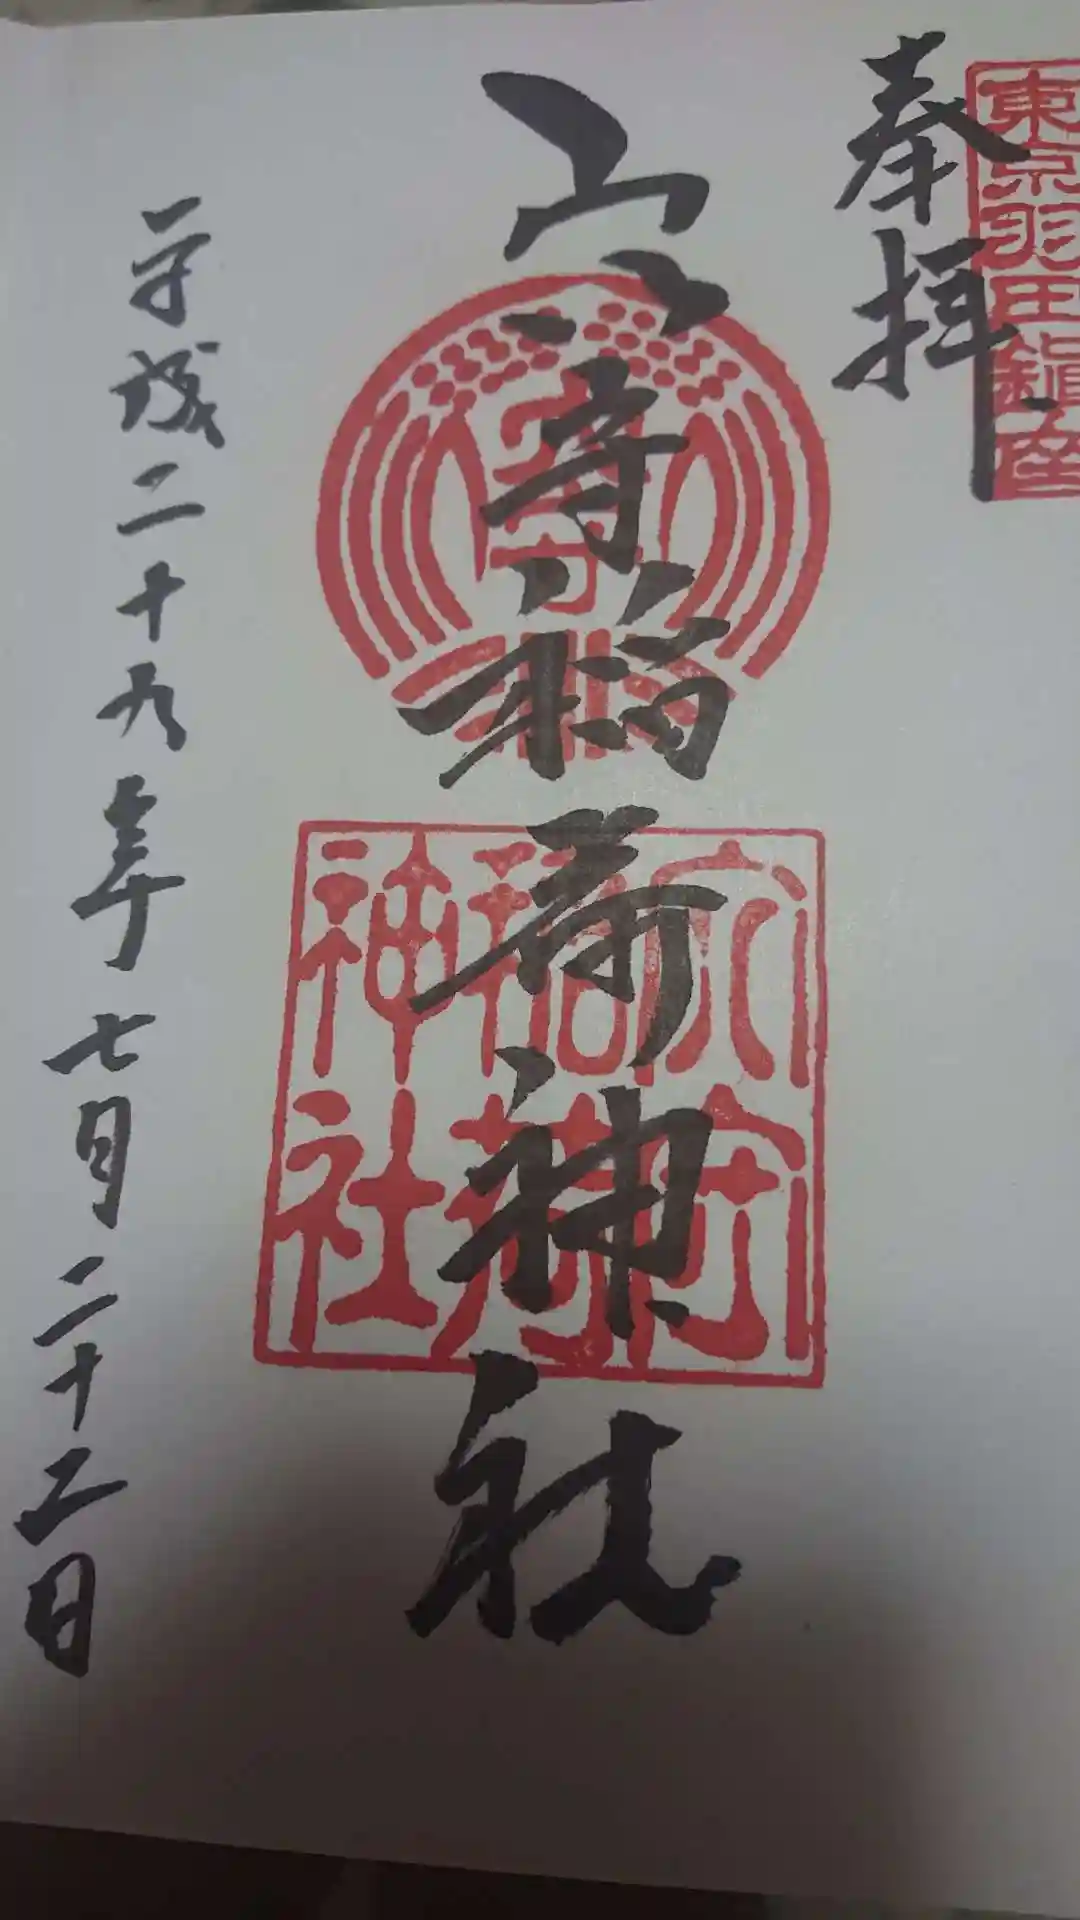 東京羽田鎮座
奉拝
穴守稲荷神社
穴守
稲荷
神社
平成二十九年七月二十二日